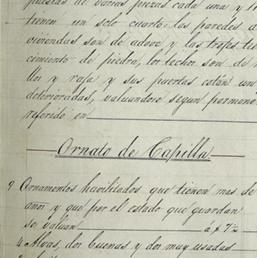 puestas de varias piezas cada una y
tienen un solo cuarto: las paredes
viviendas son de adove y las tres
cimiento de piedra, los techos son de
llos y raja y sus puertas estan
deterioradas, valuandose segun pormenor
referido en
Ornato de Capilla
9 Ornamentos haviilitados que tienen mas de
años y que por el estado que guardan
se valuan á $ 7
4 Alvas, dos buenas y dos muy usadas